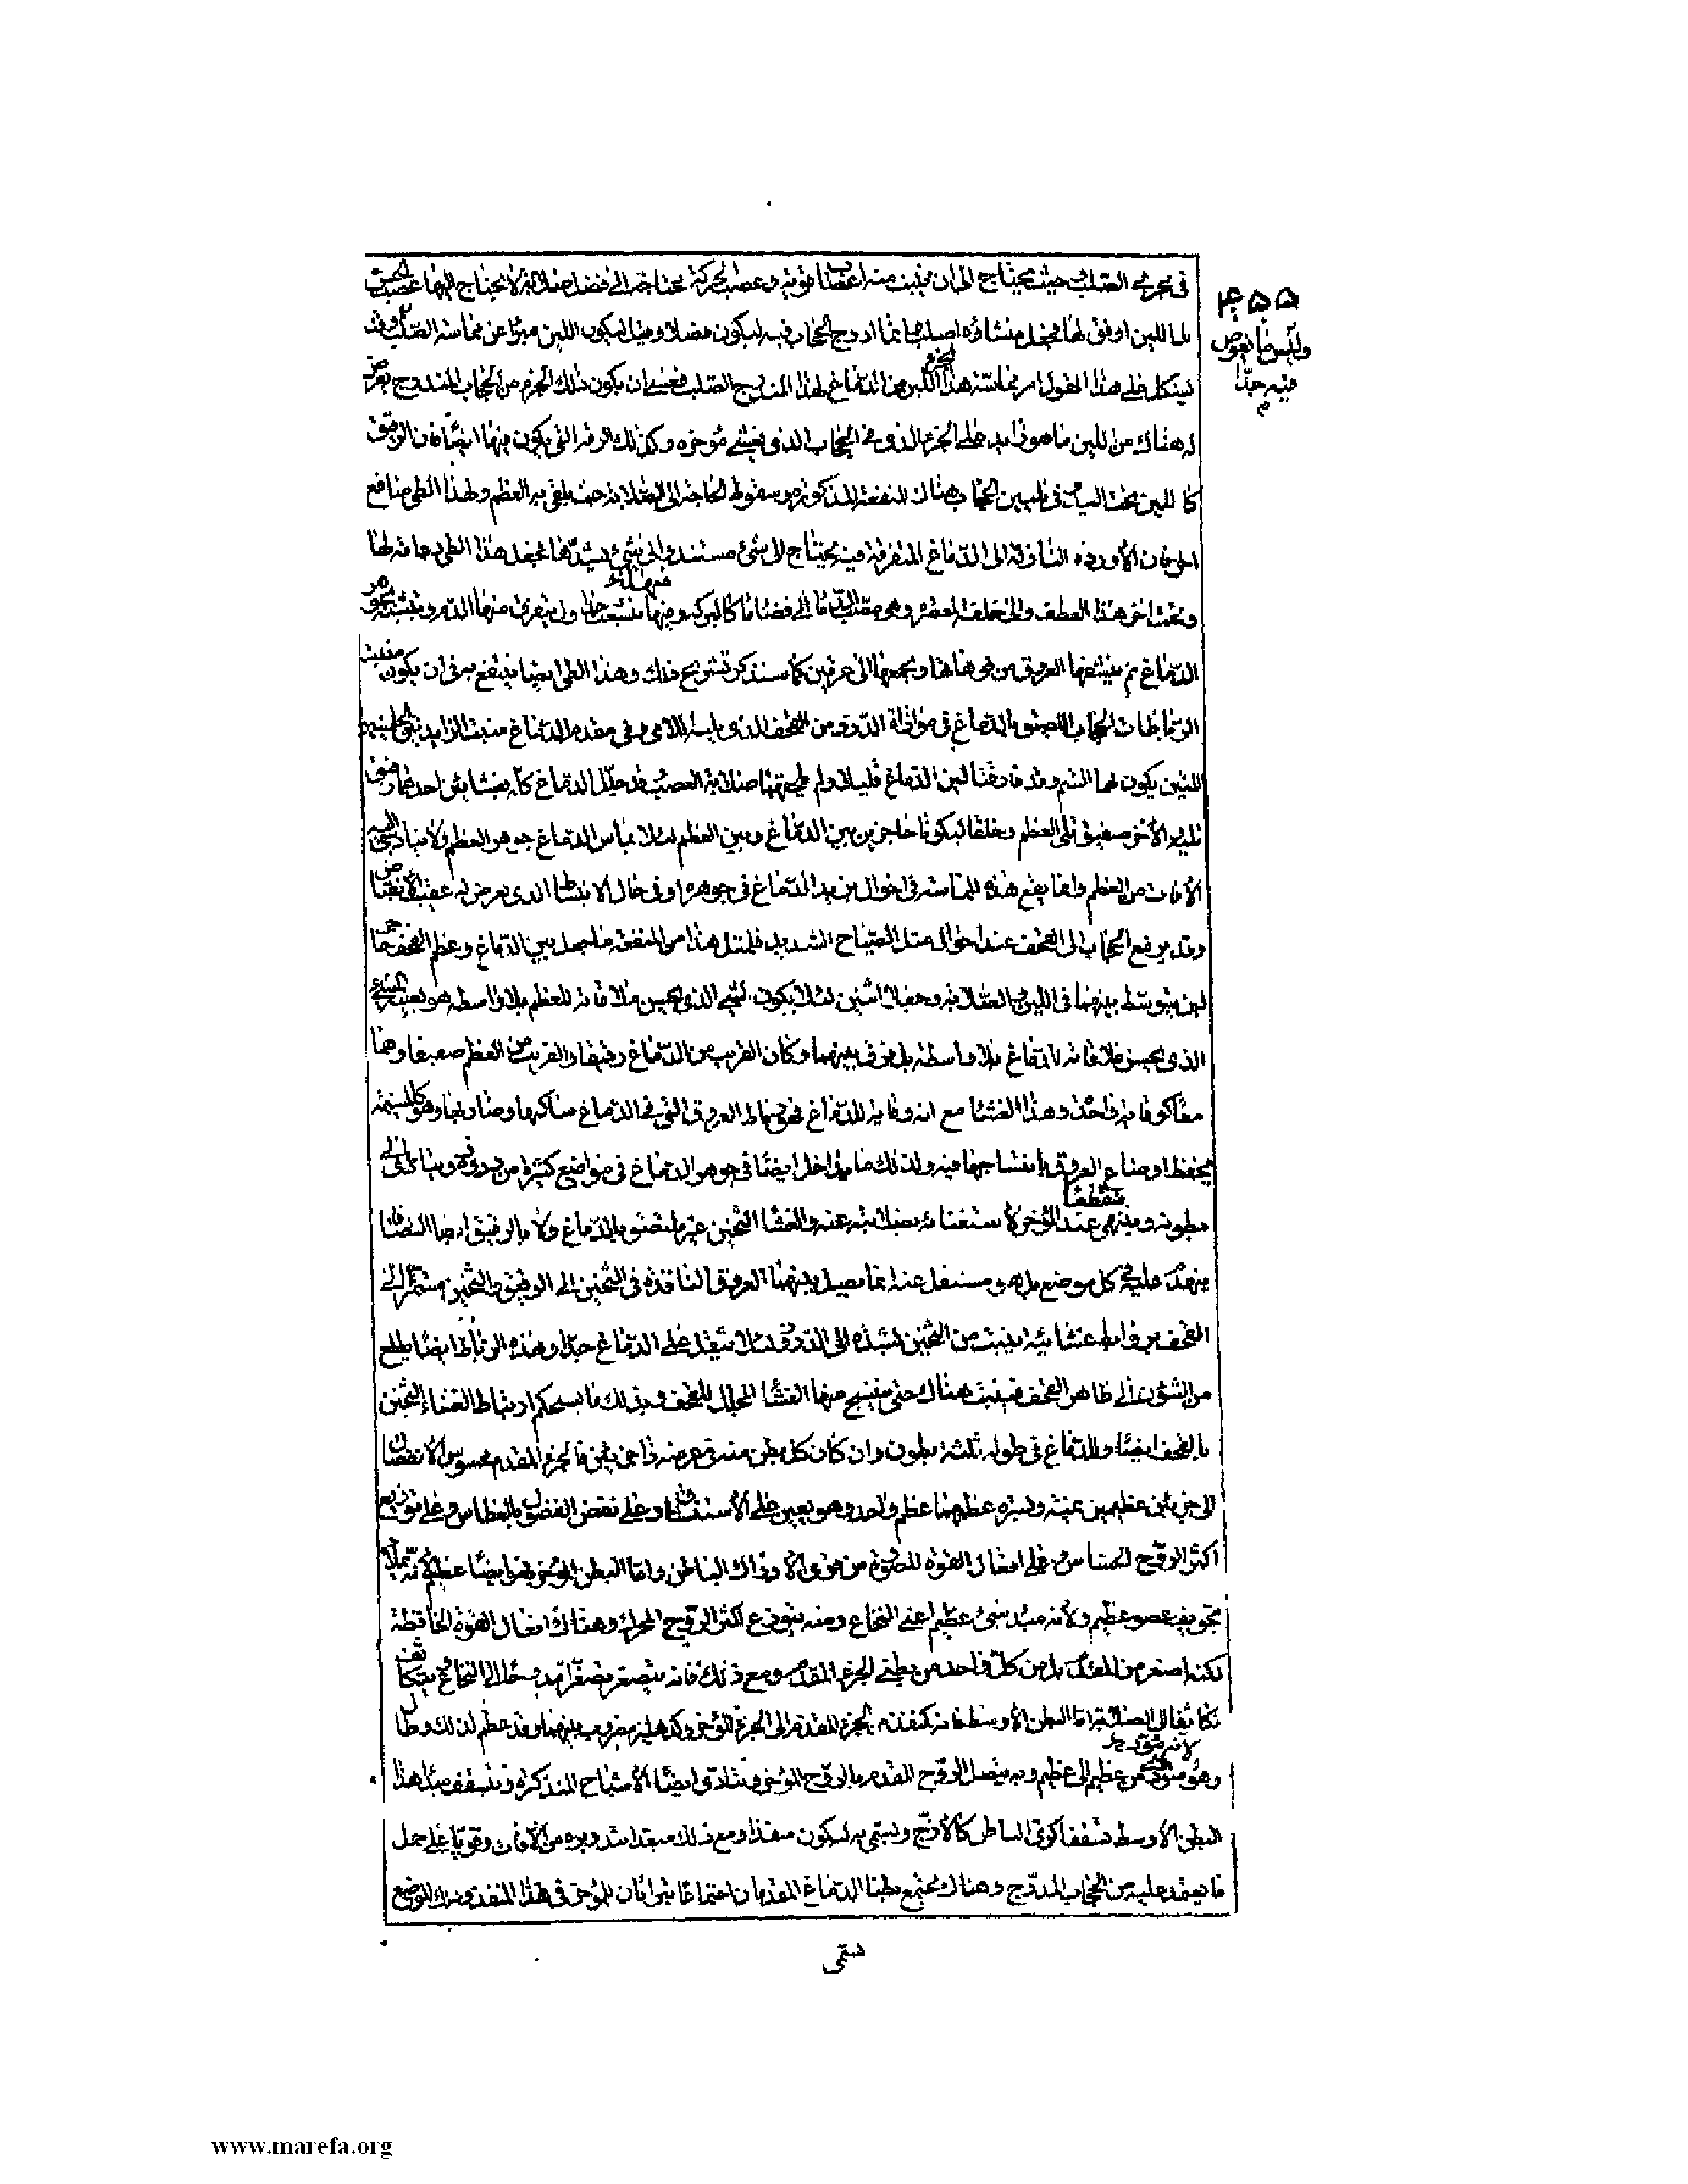 في محرى الصلب حيث يحتاج الى ان ينبت منه اعصاب قوية وعصب الحركة محتاجة الى فضل صلابة لا يحتاج اليها عصب الحس
بل اللين اوفق لها فجعل منشاؤه اصلب وانما ادرج الحجاب فيه ليكون فصلا وقيل ليكون اللين مبرّا عن مماسة الصلب وقد
يشكل على هذا القول امر مماسة هذا الجزء اللين من الدماغ لهذا المندرج الصلب فعسى ان يكون ذلك الجزء من الحجاب المندرج يعرض
له هناك من اللين ما هو زايد على الجزء الذى فى الحجاب الذى يغشى مؤخره وكذلك الرقة التى يكون فيها ايضا فان الرقيق
كاللين تحت اليابس فى تليين الحجاب هناك المنفعة المذكورة سقوط الحاجة الى الصلابة حيث يلقى به العظم ولهذا الطى منافع
اخرى فان الأوردة النازلة الى الدماغ المتفرقة فيه يحتاج الى شئ مستند والى شئ يشدّها فجعل هذا الطى دعامة لها
وتحت اخر هذا العطف والى خلفه المعصرة وهى مصب الدماء الى فضاء كالبركة ومنها تتشعب جداول يتفرق منها الدم ويتشبه بجوهر
الدماغ ثم ينشفها العروق من فوهاتها ويجمعها الى عرقين كما سنذكر تشريح ذلك وهذا الطى ايضا ينتفع به فى ان يكون منبت
الرباطات الحجاب اللصيق بالدماغ فى موازاة الدرز من القحف الذى يليه اللامى وفى مقدم الدماغ منبت الزايدتين الحلمتين
اللتين يكون بهما الشم وقد فارقتا لين الدماغ قليلا ولم تلحقهما صلابة العصب وقد جلّل الدماغ كله بغشائين احدهما رقيق
يليه والأخر صفيق يلى العظم وخلقا ليكونا حاجزين بين الدماغ وبين العظم لئلا يماس الدماغ جوهر العظم ولا يتادى اليه
الأفات من العظم وانما يقع هذه المماسة فى احوال تزيد الدماغ فى جوهره او فى حال الانبساط الذى يعرض له عقيب الأنقباض
وقد يرتفع الحجاب الى القحف عند احوال مثل الصياح الشديد فلمثل هذا من المنفعة ما جعل بين الدماغ وعظم القحف حاجزين
لين يتوسط بينهما فى اللين والصلابة وجعلا اثنين لئلا يكون الشئ الذى يحسن ملاقاته للعظم بلا واسطة هو بعينه الشئ
الذى يحسن ملاقاته للدماغ بلا واسطة بل فرق بينهما وكان القريب من الدماغ رقيقا والقريب من العظم صفيقا وهما
معا كوقاية واحدة وهذا الغشاء مع انه وقاية للدماغ فهو رباط العروق التى فى الدماغ ساكنها وضاربها وهو كالمشيمة
يحفظ اوضاع العروق بانتساجها فيه ولذلك ما يداخل ايضا فى جوهر الدماغ فى مواضع كثيرة من دروزه ويتادى الى
بطونه وينتهى عند المؤخر منقطعا لاستغنائه بصلابته عنه والغشا الثخين غير ملتصق بالدماغ ولا بالرقيق ايضا التصاقا
يتهندم عليه فى كل موضع بل هو مستقل عنه انما يصل بينهما العروق النافذة فى الثخين الى الرقيق والثخين مسمّر الى
القحف بروابط غشائية ينبت من الثخين تشده الى الدروز لئلا يثقل على الدماغ جدا وهذه الرباطات ايضا يطلع
من الشؤون الى ظاهر القحف فينبت هناك حتى ينتسج منها الغشا المجلل للقحف وبذلك ما يستحكم ارتباط الغشاء الثخين
بالقحف ايضا وللدماغ فى طوله ثلثة بطون وان كان كل بطن منه فى عرضه ذا جزئين فالجزء المقدم محسوس الأنفصال
الى جزئين عظيمين يمنة ويسرة عظمهما عظم واحد وهو يعين على الأستنشاق وعلى نفض الفضول بالعطاس وعلى توزيع
اكثر الروح الحساس وعلى افعال القوة المصورة من قوى الادراك الباطن واما البطن المؤخر فهو ايضا عظيم لأنه يملأ
تجويف عضو عظيم ولأنه مبدأ شئ عظيم اعنى النخاع ومنه يتوزع اكثر الروح المحرك وهناك افعال القوة الحافظة
لكنه اصغر من المقدم بل من كل واحد من بطنى الجزء المقدم ومع ذلك فانه يتصغر تصغرا مدرجا الى النخاع ويتكاثف
تكاثفا الى الصلابة اما البطن الأوسط فانه كمنفذ من الجزء المقدم الى الجزء المؤخر وكدهليز مضروب بينهما وقد عظم لذلك وطال
لأنه مؤد
وهو مؤد من عظيم الى عظيم وبه يتصل الروح المقدم بالروح المؤخر ويتادى ايضا الأشباح المتذكرة ويتسقف مبدأ هذا
البطن الأوسط بسقف كرى الباطن كالأزج ويسمى به ليكون منفذا ومع ذلك مبعدا بتدويره من الأفات وقويا على حمل
ما يعتمد عليه من الحجاب المدرج وهناك يجتمع بطنا الدماغ المقدمان اجتماعا يترائان للمؤخر فى هذا المنفذ وذلك الموضع
يسمى
٤٥٥
وليس مما يغوص
فيه جدا
م
www.marefa.org